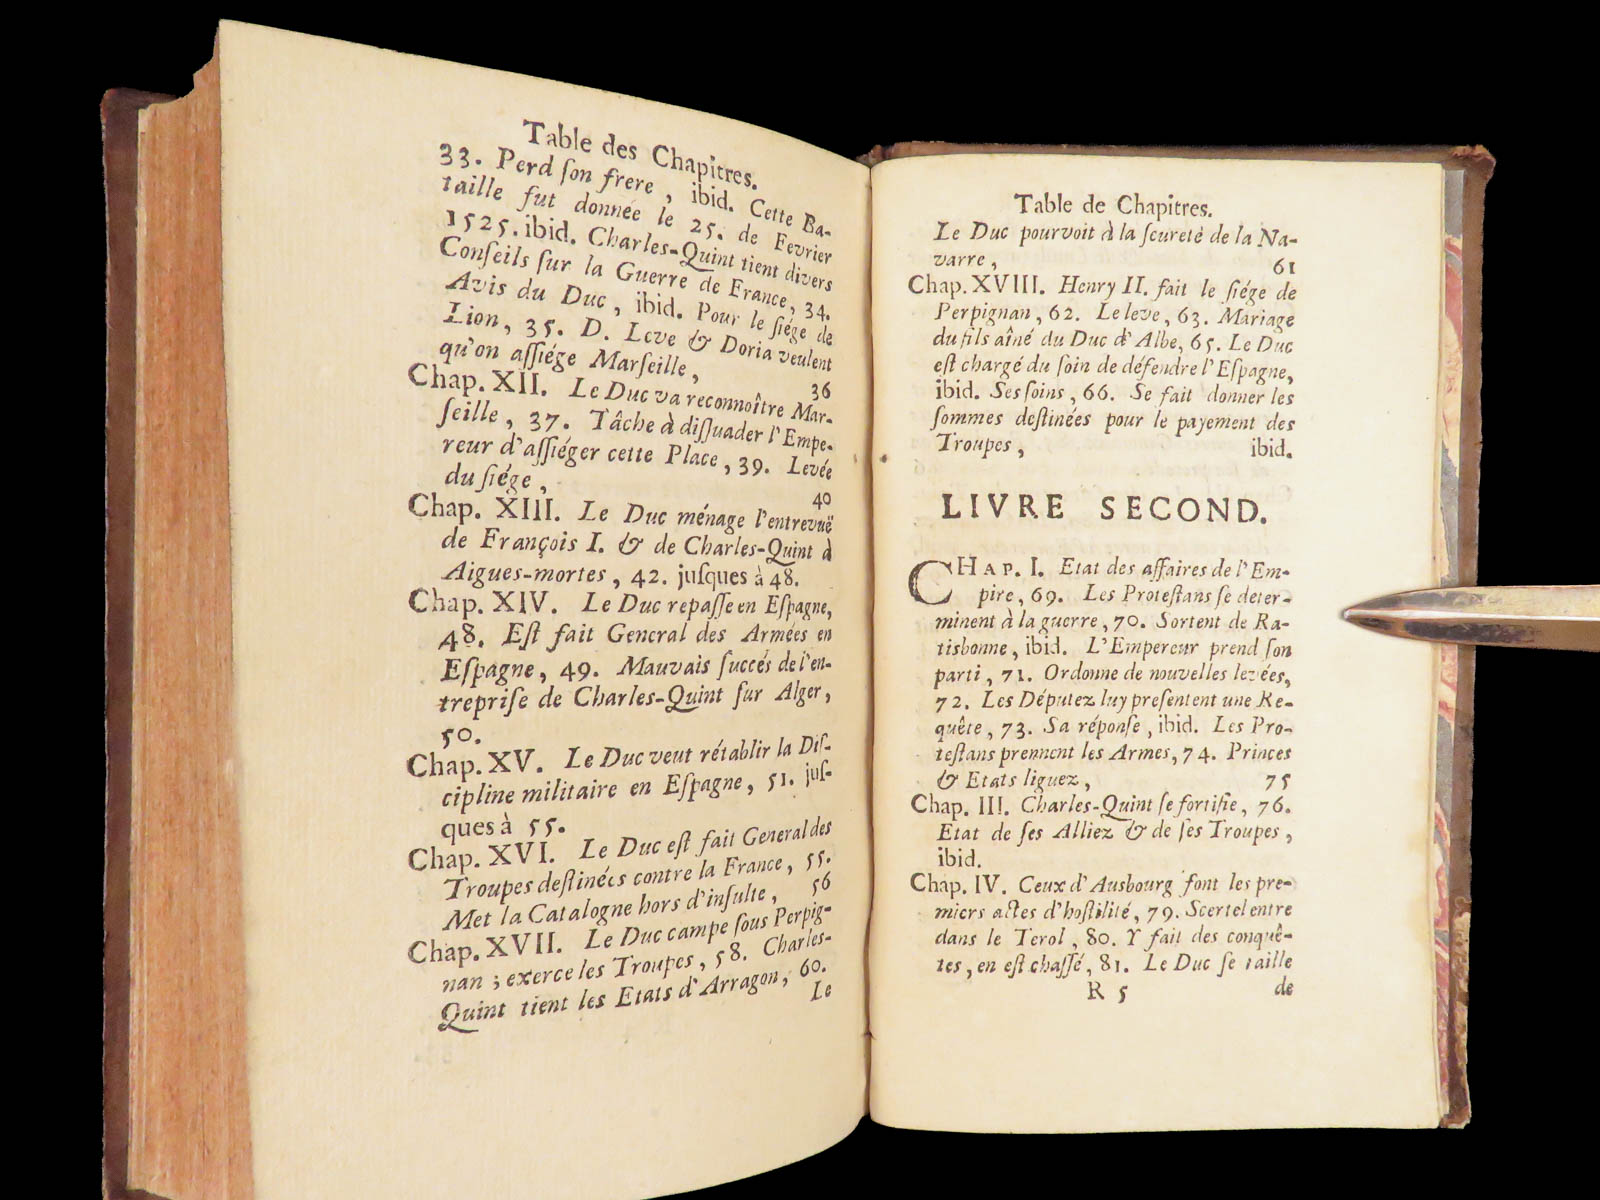 Table des Chapitres.
33. Perd ſon frere, ibid. Cette Ba-
taille fut donnée le 25. de Fevrier
1525. ibid. Charles-Quint tient divers
Conſeils ſur la Guerre de France, 34.
Avis du Duc, ibid. Pour le ſiége de
Lion, 35. D. Leve & Doria veulent
qu'on aſſiége Marſeille, 36
Chap. XII. Le Duc va reconnoître Mar-
ſeille, 37. Tâche à diſſuader l'Empe-
reur d'aſſiéger cette Place, 39. Levée
du ſiége, 40
Chap. XIII. Le Duc ménage l'entrevuë
de François I. & de Charles-Quint à
Aigues-mortes, 42. juſques à 48.
Chap. XIV. Le Duc repaſſe en Eſpagne,
48. Eſt fait General des Armées en
Eſpagne, 49. Mauvais ſuccés de l'en-
trepriſe de Charles-Quint ſur Alger,
50.
Chap. XV. Le Duc veut rétablir la Diſ-
cipline militaire en Eſpagne, 51. juſ-
ques à 55.
Chap. XVI. Le Duc eſt fait General des
Troupes deſtinées contre la France, 55.
Met la Catalogne hors d'inſulte, 56
Chap. XVII. Le Duc campe ſous Perpig-
nan; exerce les Troupes, 58. Charles-
Quint tient les Etats d'Arragon, 60.
Le
Table de Chapitres.
Le Duc pourvoit à la ſcureté de la Na-
varre, 61
Chap. XVIII. Henry II. fait le ſiége de
Perpignan, 62. Le leve, 63. Mariage
du fils aîné du Duc d'Albe, 65. Le Duc
eſt chargé du ſoin de défendre l'Eſpagne,
ibid. Ses ſoins, 66. Se fait donner les
ſommes deſtinées pour le payement des
Troupes, ibid.
LIVRE SECOND.
CHAP. I. Etat des affaires de l'Em-
pire, 69. Les Proteſtans ſe deter-
minent à la guerre, 70. Sortent de Ra-
tisbonne, ibid. L'Empereur prend ſon
parti, 71. Ordonne de nouvelles levées,
72. Les Députez luy preſentent une Re-
quête, 73. Sa réponſe, ibid. Les Pro-
teſtans prennent les Armes, 74. Princes
& Etats liguez, 75
Chap. III. Charles-Quint ſe fortifie, 76.
Etat de ſes Alliez & de ſes Troupes,
ibid.
Chap. IV. Ceux d'Ausbourg font les pre-
miers actes d'hoſtilité, 79. Scertel entre
dans le Terol, 80. Y fait des conquê-
tes, en eſt chaſſé, 81. Le Duc ſe raille
R 5 de